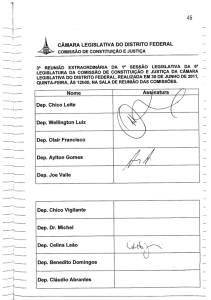 45
CÂMARA LEGISLATIVA DO DISTRITO FEDERAL
COMISSÃO DE CONSTITUIÇÃO E JUSTIÇA
3ª REUNIÃO EXTRAORDINÁRIA DA 1ª SESSÃO LEGISLATIVA DA 6ª
LEGISLATURA DA COMISSÃO DE CONSTITUIÇÃO E JUSTIÇA DA CÂMARA
LEGISLATIVA DO DISTRITO FEDERAL, REALIZADA EM 30 DE JUNHO DE 2011,
QUINTA-FEIRA, ÀS 12h00, NA SALA DE REUNIÃO DAS COMISSÕES.
Nome Assinatura
Dep. Chico Leite
Dep. Wellington Luiz
Dep. Olair Francisco
Dep. Aylton Gomes
Dep. Joe Valle
Dep. Chico Vigilante
Dep. Dr. Michel
Dep. Celina Leão
Dep. Benedito Domingos
Dep. Cláudio Abrantes